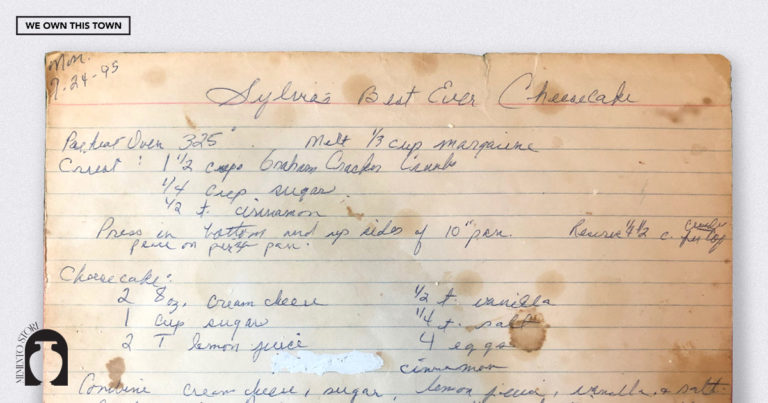 WE OWN THIS TOWN
Mon.
7-24-95
Sylvia's Best Ever Cheesecake
Preheat Oven 325° . Melt 1/3 cup margarine
Crust : 1 1/2 cups Graham Cracker Crumbs
1/4 cup sugar
1/2 t. cinnamon
Press in bottom and up sides of 10" pan. Reserve 1/2 c. for top
place on pizza pan.
Cheesecake:
2 8 oz. cream cheese 1/2 t. vanilla
1 cup sugar 1/4 t. salt
2 T lemon juice 4 eggs
cinnamon
Combine cream cheese, sugar, lemon juice, vanilla, & salt.